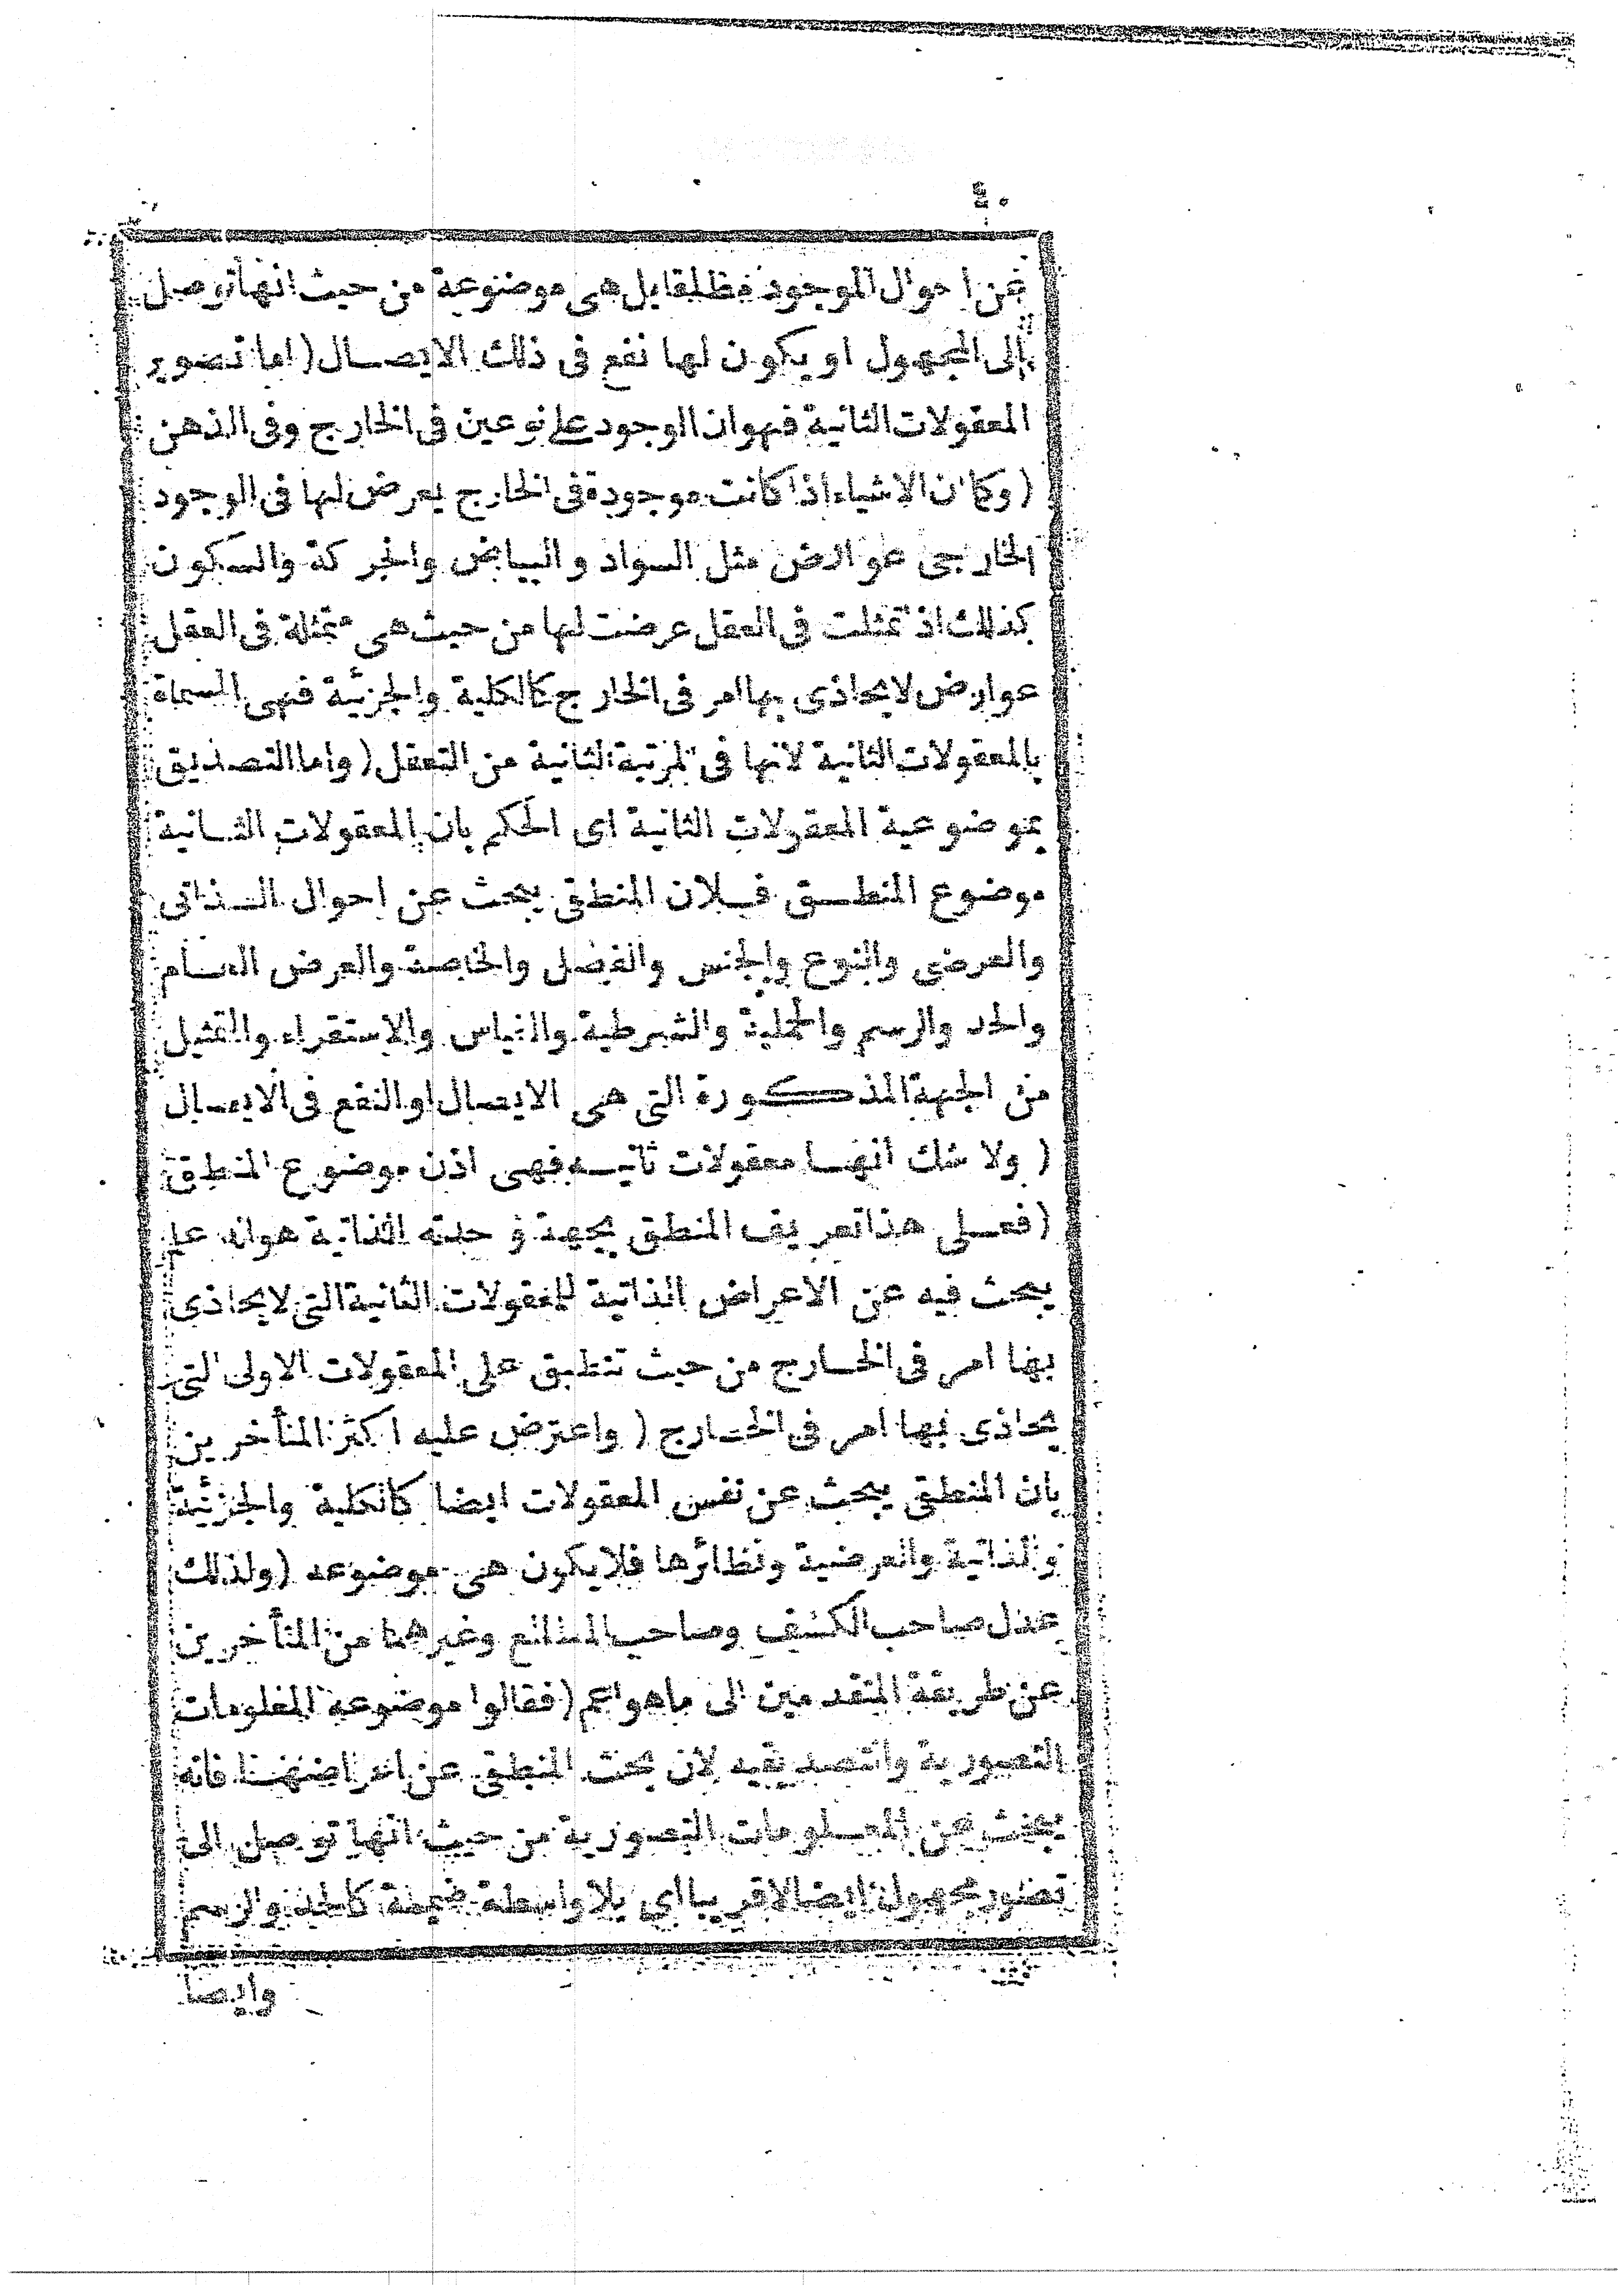 عن احوال الموجود مطلقا بل هى موضوعة من حيث انها توصل
الى المجهول او يكون لها نفع فى ذلك الايصال (اما تصوير
المعقولات الثانية فهو ان الوجود على نوعين فى الخارج وفى الذهن
(وكما ان الاشياء اذا كانت موجودة فى الخارج يعرض لها فى الوجود
الخارجى عوارض مثل السواد والبياض والحركة والسكون
كذلك اذا تمثلت فى العقل عرضت لها من حيث هى متمثلة فى العقل
عوارض لا يحاذى بها امر فى الخارج كالكلية والجزئية فهى المسماة
بالمعقولات الثانية لانها فى المرتبة الثانية من التعقل (واما التصديق
بموضوعية المعقولات الثانية اى الحكم بان المعقولات الثانية
موضوع المنطق فلان المنطقى يبحث عن احوال الذاتى
والعرضى والنوع والجنس والفصل والخاصة والعرض العام
والحد والرسم والحملية والشرطية والقياس والاستقراء والتمثيل
من الجهة المذكورة التى هى الايصال او النفع فى الايصال
(ولا شك انها معقولات ثانيه فهى اذن موضوع المنطق
(فعلى هذا تعريف المنطق بجهة وحدته الذاتية هو انه علم
يبحث فيه عن الاعراض الذاتية للمعقولات الثانية التى لا يحاذى
بها امر فى الخارج من حيث تنطبق على المعقولات الاولى التى
يحاذى بها امر فى الخارج (واعترض عليه اكثر المتأخرين
بان المنطقى يبحث عن نفس المعقولات ايضا كالكلية والجزئية
والذاتية والعرضية ونظائرها فلا يكون هى موضوعه (ولذلك
عدل صاحب الكشف وصاحب المطالع وغيرهما من المتأخرين
عن طريقة المتقدمين الى ما هو اعم (فقالوا موضوعه المعلومات
التصورية والتصديقيه لان بحث المنطقى عن اعراضهما فانه
يبحث عن المعلومات التصورية من حيث انها توصل الى
تصور مجهول ايصالا قريبا اى بلا واسطة ضميمة كالحد والرسم
وايصا